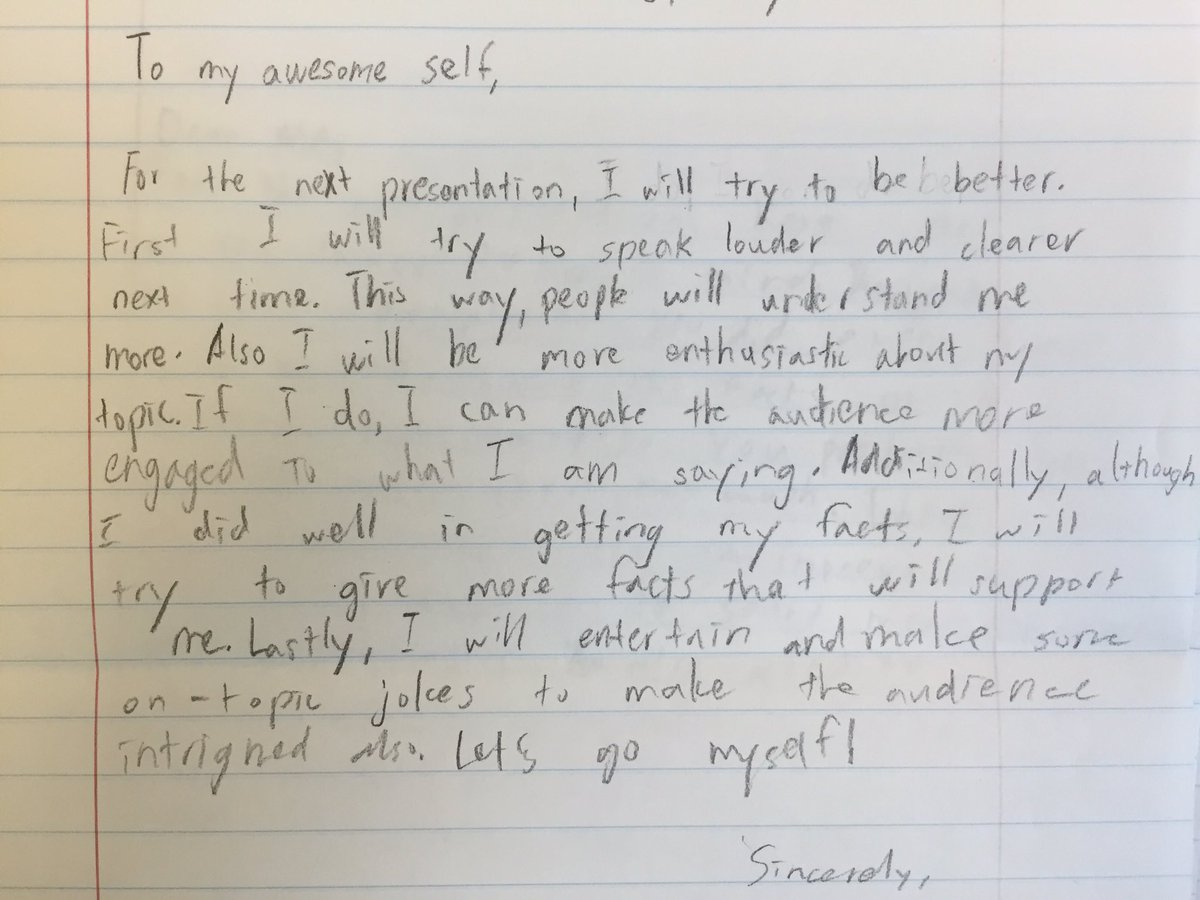 To my awesome self,
For the next presentation, I will try to be better.
First I will try to speak louder and clearer
next time. This way, people will understand me
more. Also I will be more enthusiastic about my
topic. If I do, I can make the audience more
engaged to what I am saying. Additionally, although
I did well in getting my facts, I will
try to give more facts that will support
me. Lastly, I will entertain and make some
on-topic jokes to make the audience
intrigued also. Let's go myself!
Sincerely,